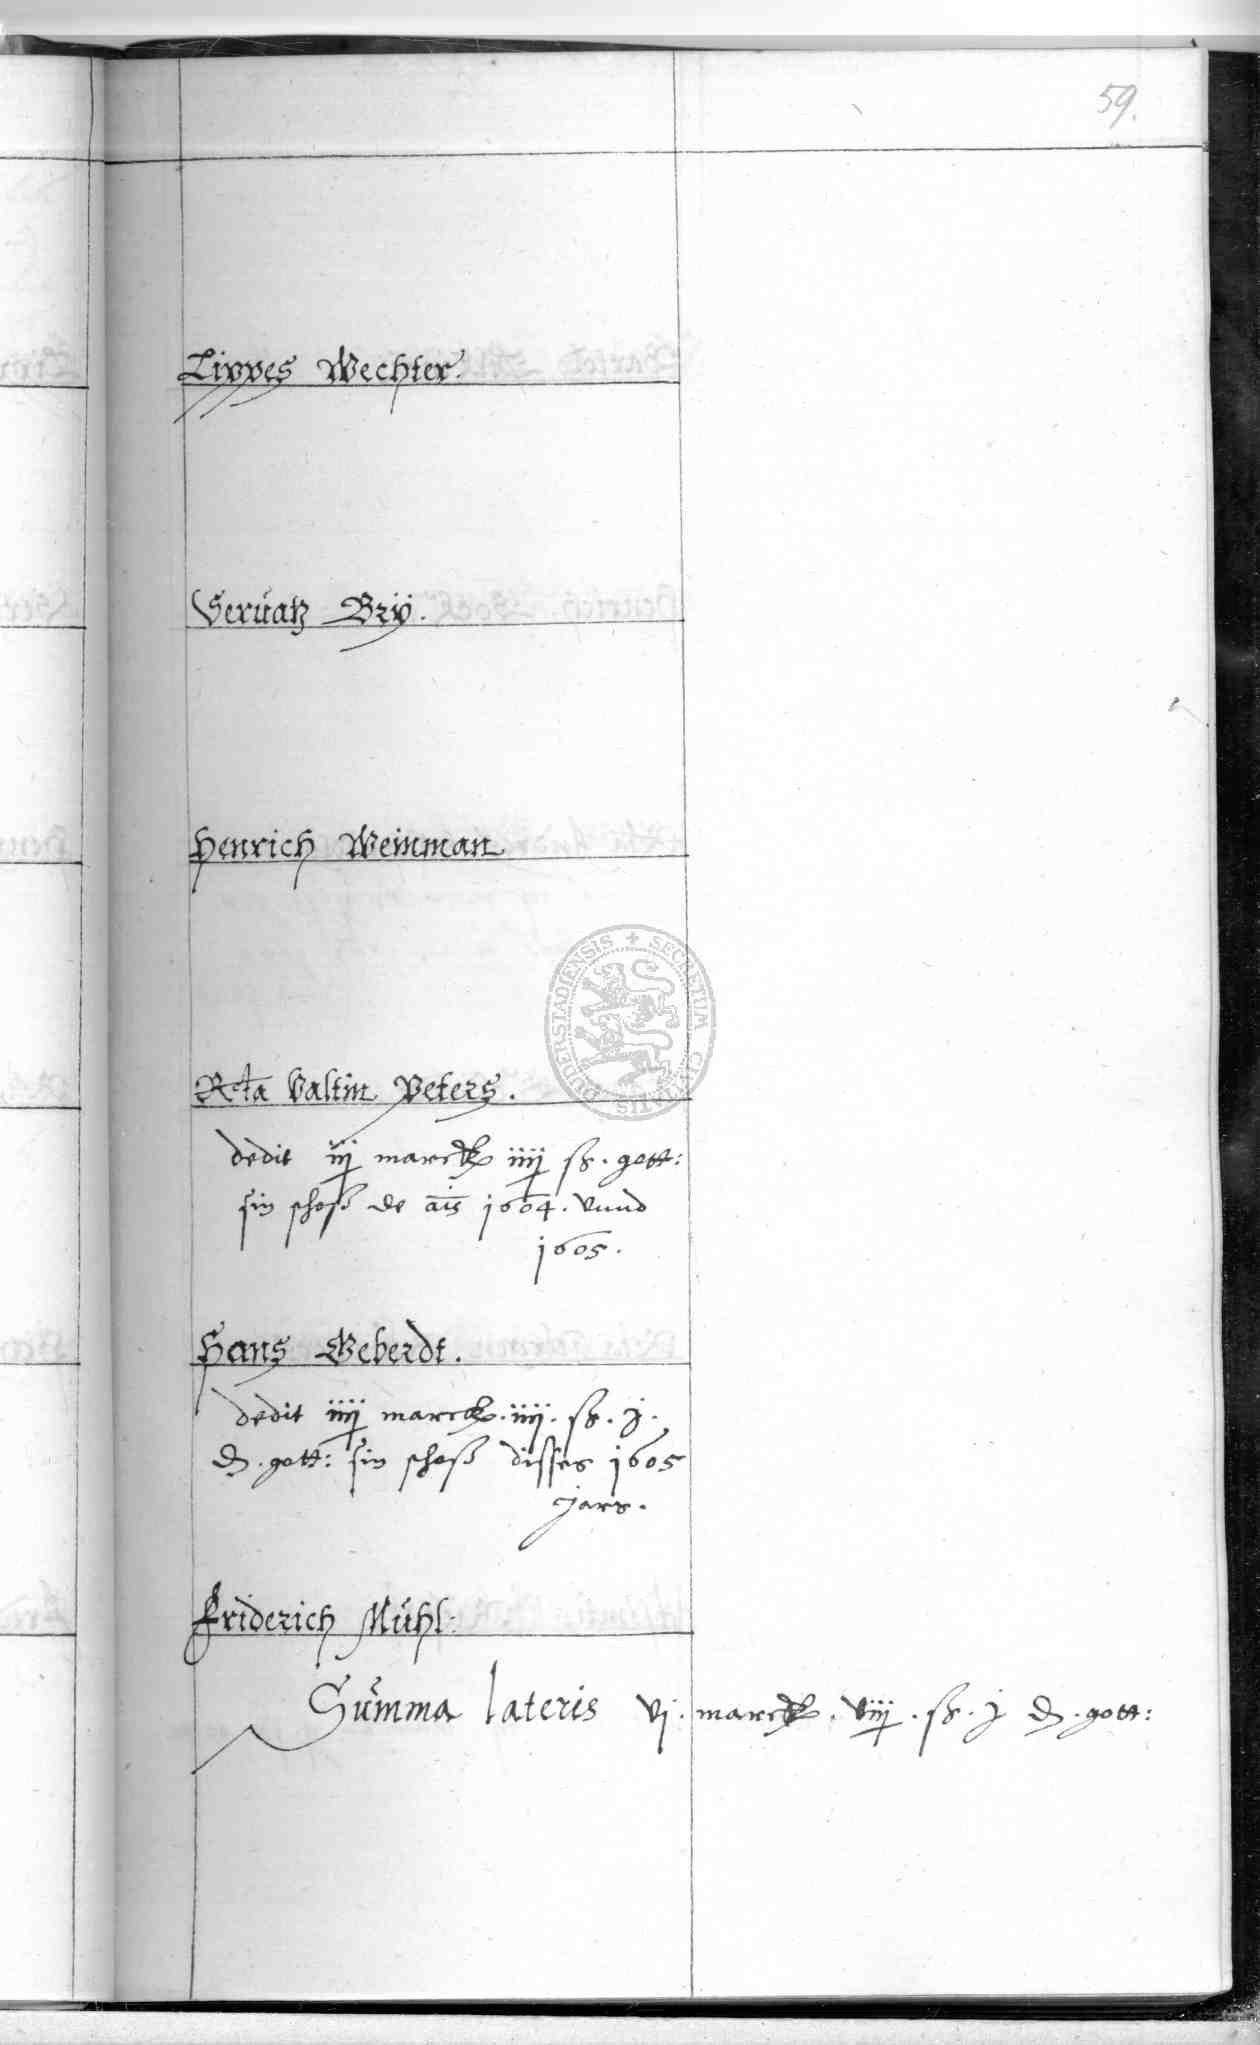 59.
Lippes Wechter.
Seruatz Brÿ.
Henrich Weinman
Rcta Valtin Peters.
dedit iij marck iiij ß. gott:
sin schoß de ais 1604. vnnd
1605.
Hans Geberdt.
dedit iiij marck. iiij. ß. j.
₰. gott: sin schoß disses 1605
jars.
Friderich Mühl:
Summa lateris vj. marck. viij. ß. j ₰. gott:
SECRETUM CIVITATIS DUDERSTADIENSIS